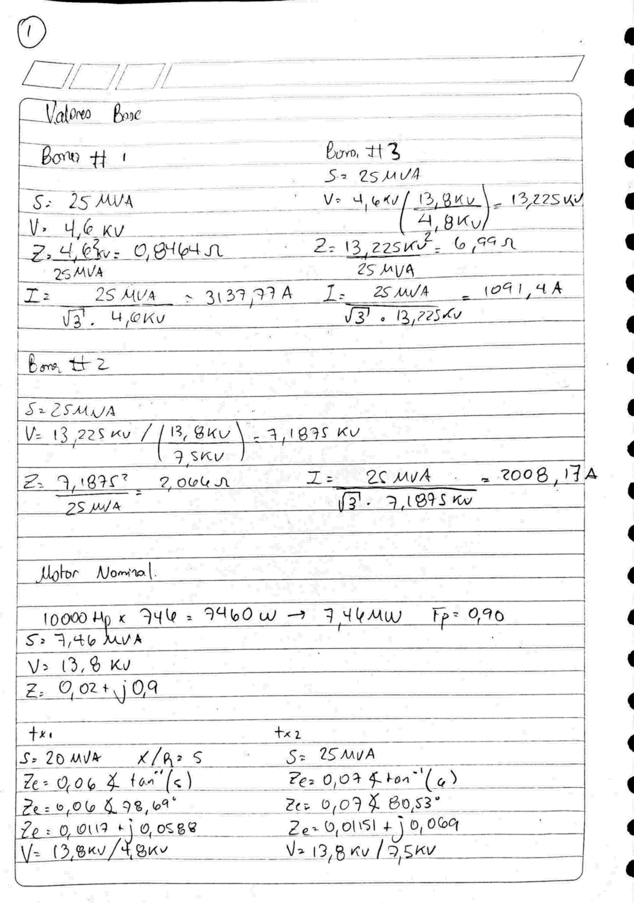 1
Valores Base
Barra # 1
S= 25 MVA
V= 4,6 KV
Z= 4,6²KV / 25 MVA = 0,8464 Ω
I = 25 MVA / √3 · 4,6KV = 3137,77 A
Barra # 3
S= 25 MVA
V= 4,6 KV (13,8KV / 4,8KV) = 13,225 KV
Z= 13,225KV² / 25 MVA = 6,99 Ω
I= 25 MVA / √3 · 13,225KV = 1091,4 A
Barra # 2
S=25MVA
V= 13,225 KV / (13,8KV / 7,5KV) = 7,1875 KV
Z= 7,1875² / 25 MVA = 2,066 Ω
I= 25 MVA / √3 · 7,1875 KV = 2008,17 A
Motor Nominal.
10000 Hp x 746 = 7460 W → 7,46 MW Fp= 0,90
S= 7,46 MVA
V= 13,8 KV
Z= 0,02 + j0,9
tx1
S= 20 MVA X/R = 5
Ze = 0,06 ∡ tan⁻¹(5)
Ze = 0,06 ∡ 78,69°
Ze = 0,0117 + j 0,0588
V= 13,8KV/4,8KV
tx2
S= 25 MVA
Ze= 0,07 ∡ tan⁻¹(6)
Ze= 0,07 ∡ 80,53°
Ze= 0,01151 + j 0,069
V= 13,8KV / 7,5KV